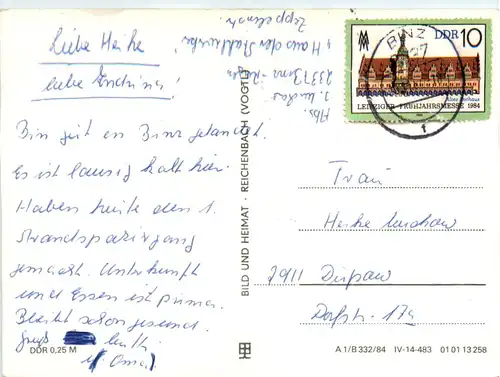 Liebe Heike
liebe Andrina!
Bin gut in Binz gelandet.
Es ist lausig kalt hier.
Haben heute den 1.
Strandspaziergang
gemacht. Unterkunft
und Essen ist prima.
Bleibt schön gesund.
Gruß Mutti
u. Oma
DDR 0,25 M
Abs.
2337 Binz - Rügen
"Haus der Stahlwerker"
Zeppelinstr.
BILD UND HEIMAT · REICHENBACH (VOGTL)
BINZ
27
f
DDR 10
Altes Rathaus
LEIPZIGER FRÜHJAHRSMESSE 1984
Frau
Heike
Dorfstr. 17a
A 1/B 332/84 IV-14-483 01 01 13 258